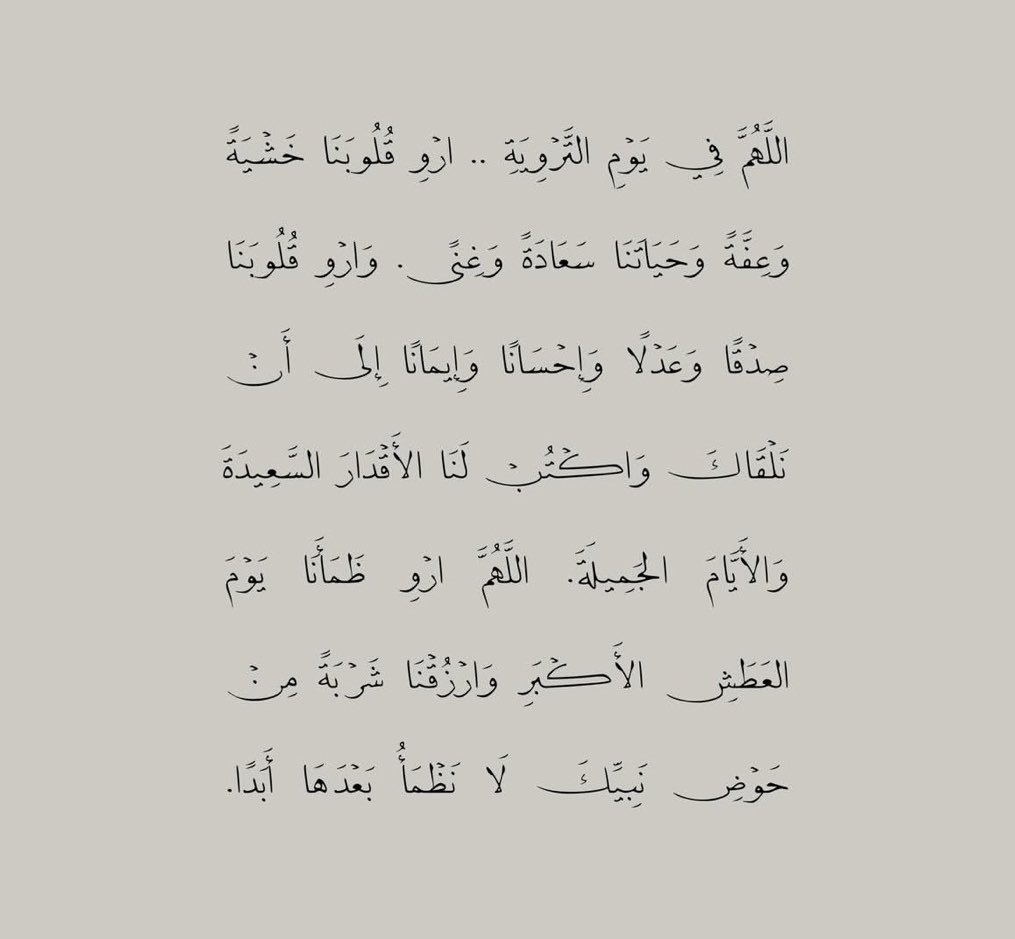 اللَّهُمَّ فِي يَوْمِ التَّرْوِيَةِ .. ارْوِ قُلُوبَنَا خَشْيَةً
وَعِفَّةً وَحَيَاتَنَا سَعَادَةً وَغِنًى. وَارْوِ قُلُوبَنَا
صِدْقًا وَعَدْلًا وَإِحْسَانًا وَإِيمَانًا إِلَى أَنْ
نَلْقَاكَ وَاكْتُبْ لَنَا الأَقْدَارَ السَّعِيدَةَ
وَالأَيَّامَ الجَمِيلَةَ. اللَّهُمَّ ارْوِ ظَمَأَنَا يَوْمَ
العَطَشِ الأَكْبَرِ وَارْزُقْنَا شَرْبَةً مِنْ
حَوْضِ نَبِيِّكَ لَا نَظْمَأُ بَعْدَهَا أَبَدًا.